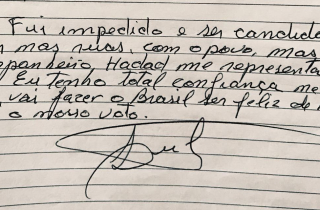 Fui impedido e ser candida
mas ruas, com o povo, mas
panheiro Hadad me representa
Eu tenho total confiança me
vai fazer o Brasil ser feliz de
o nosso voto.